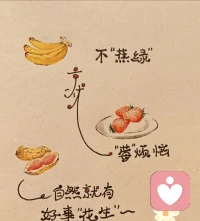 不“蕉绿”
就
“莓”烦恼
自然就有
好事“花生”~